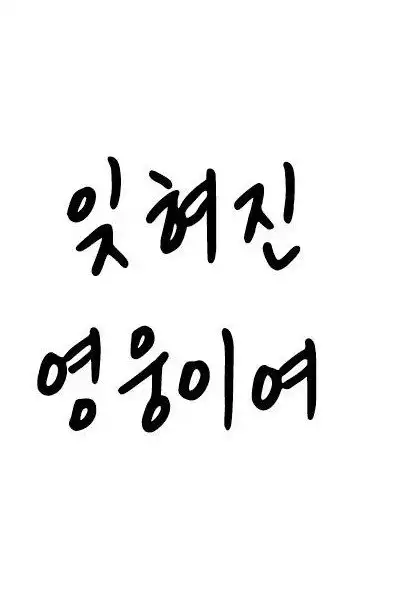 잊혀진
영웅이여